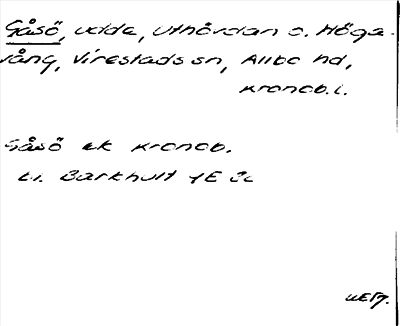 Gåsö, udde, Uthördan o. Höga-
vång, Virestads sn, Allbo hd,
Kronob. l.
Gåsö ek Kronob.
bl. Barkhult 4E 2c